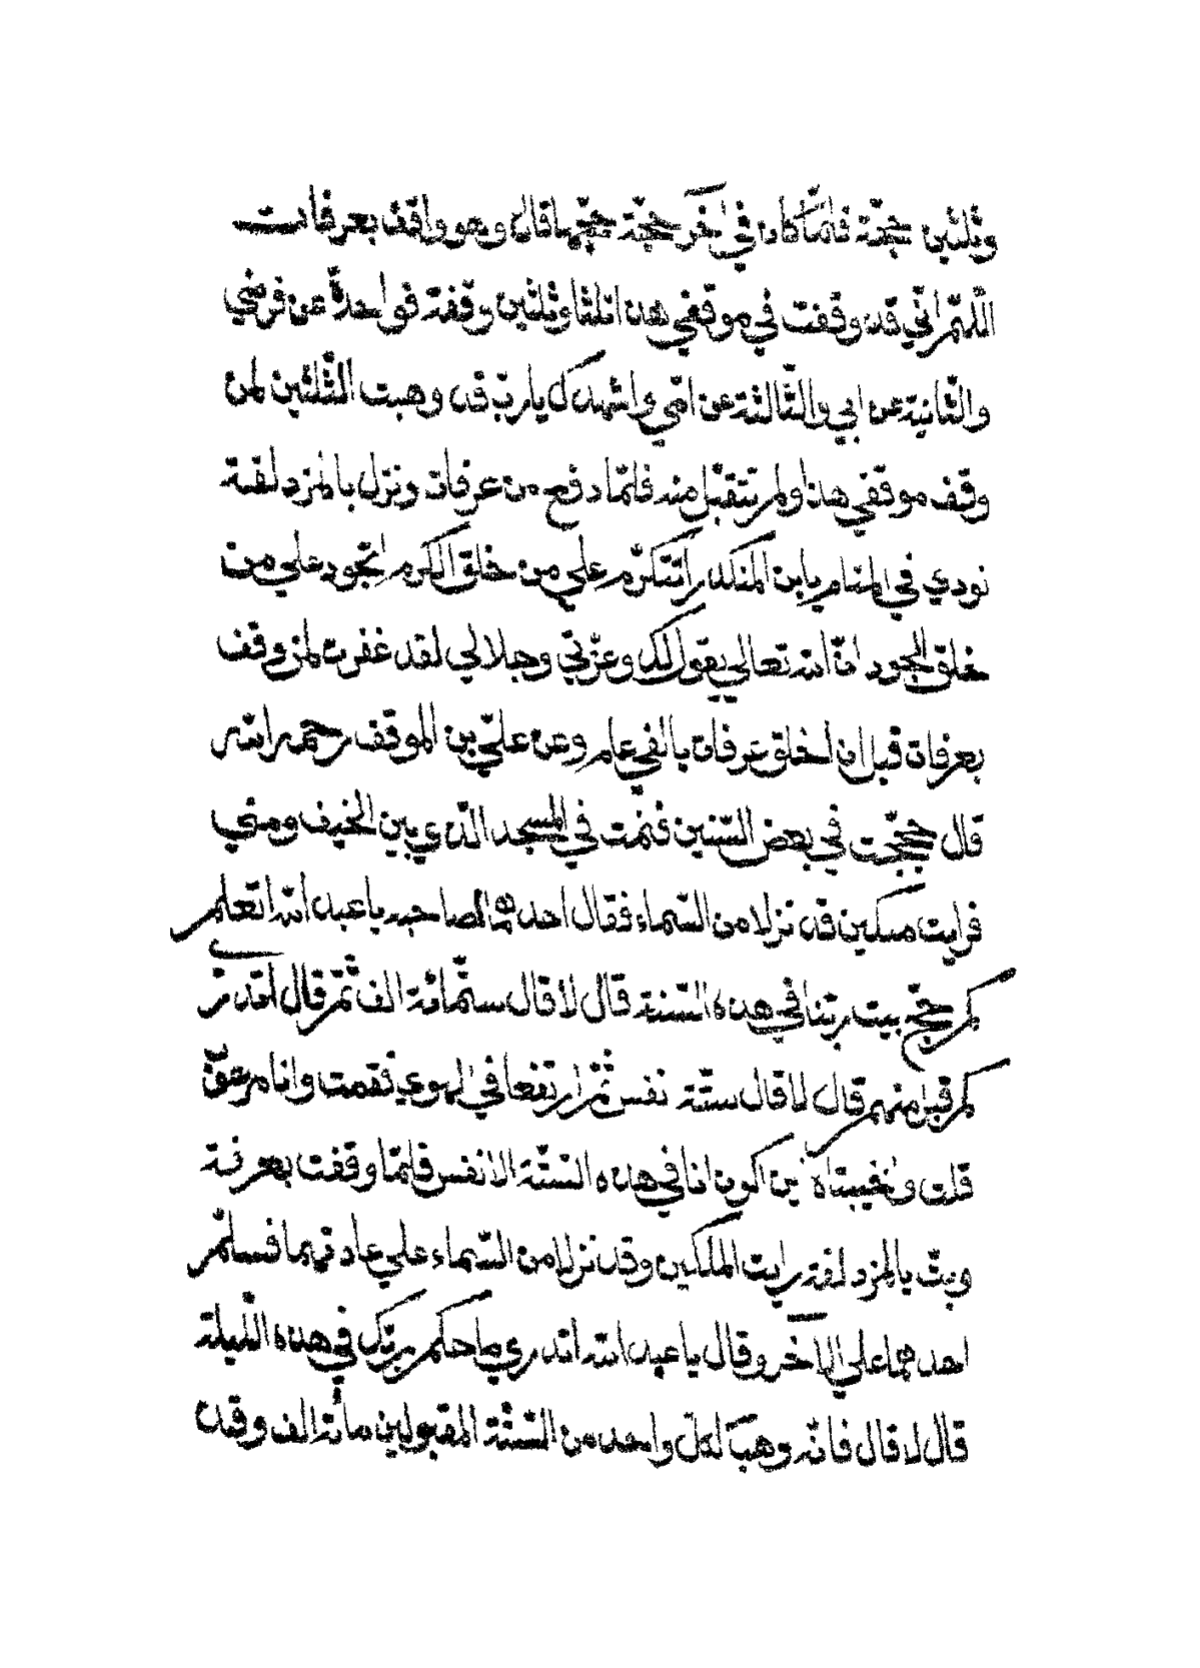 وثلثين حجّة فلمّا كان في آخر حجّة حجّها قال وهو واقف بعرفات
اللّهمّ انّي قد وقفت في موقفي هذا ثلثا وثلثين وقفة فواحدة عن فرضي
والثّانية عن ابي والثّالثة عن امّي واشهدك يا ربّ قد وهبت الثّلثين لمن
وقف موقفي هذا ولم تتقبّل منه فلمّا دفع من عرفات ونزل بالمزدلفة
نودي في المنام يا بن المنكدر أتتكرّم علي من خلق الكرم اتجود علي من
خلق الجود انّ الله تعالي يقول لك وعزّتي وجلالي لقد غفرت لمن وقف
بعرفات قبل ان اخلق عرفات بالفي عام وعن عليّ بن الموقف رحمه الله
قال حججت في بعض السّنين فنمت في المسجد الّذي بين الخيف ومني
فرايت ملكين قد نزلا من السّماء فقال احدهما لصاحبه يا عبد الله اتعلم
كم حجّ بيت ربّنا في هذه السّنة قال لا قال ستّمائة الف ثمّ قال أتدري
كم قبل منهم قال لا قال ستّة نفس ثمّ ارتفعا في الهوي فقمت وانا مرعوب
قلت واخيبتاه اين اكون انا في هذه السّتّة الانفس فلمّا وقفت بعرفة
وبتّ بالمزدلفة رايت الملكين وقد نزلا من السّماء علي عادتهما فسلّم
احدهما علي الآخر وقال يا عبد الله أتدري ما حكم ربّك في هذه اللّيلة
قال لا قال فانّه وهب لكلّ واحد من السّتّة المقبولين مائة الف وقد